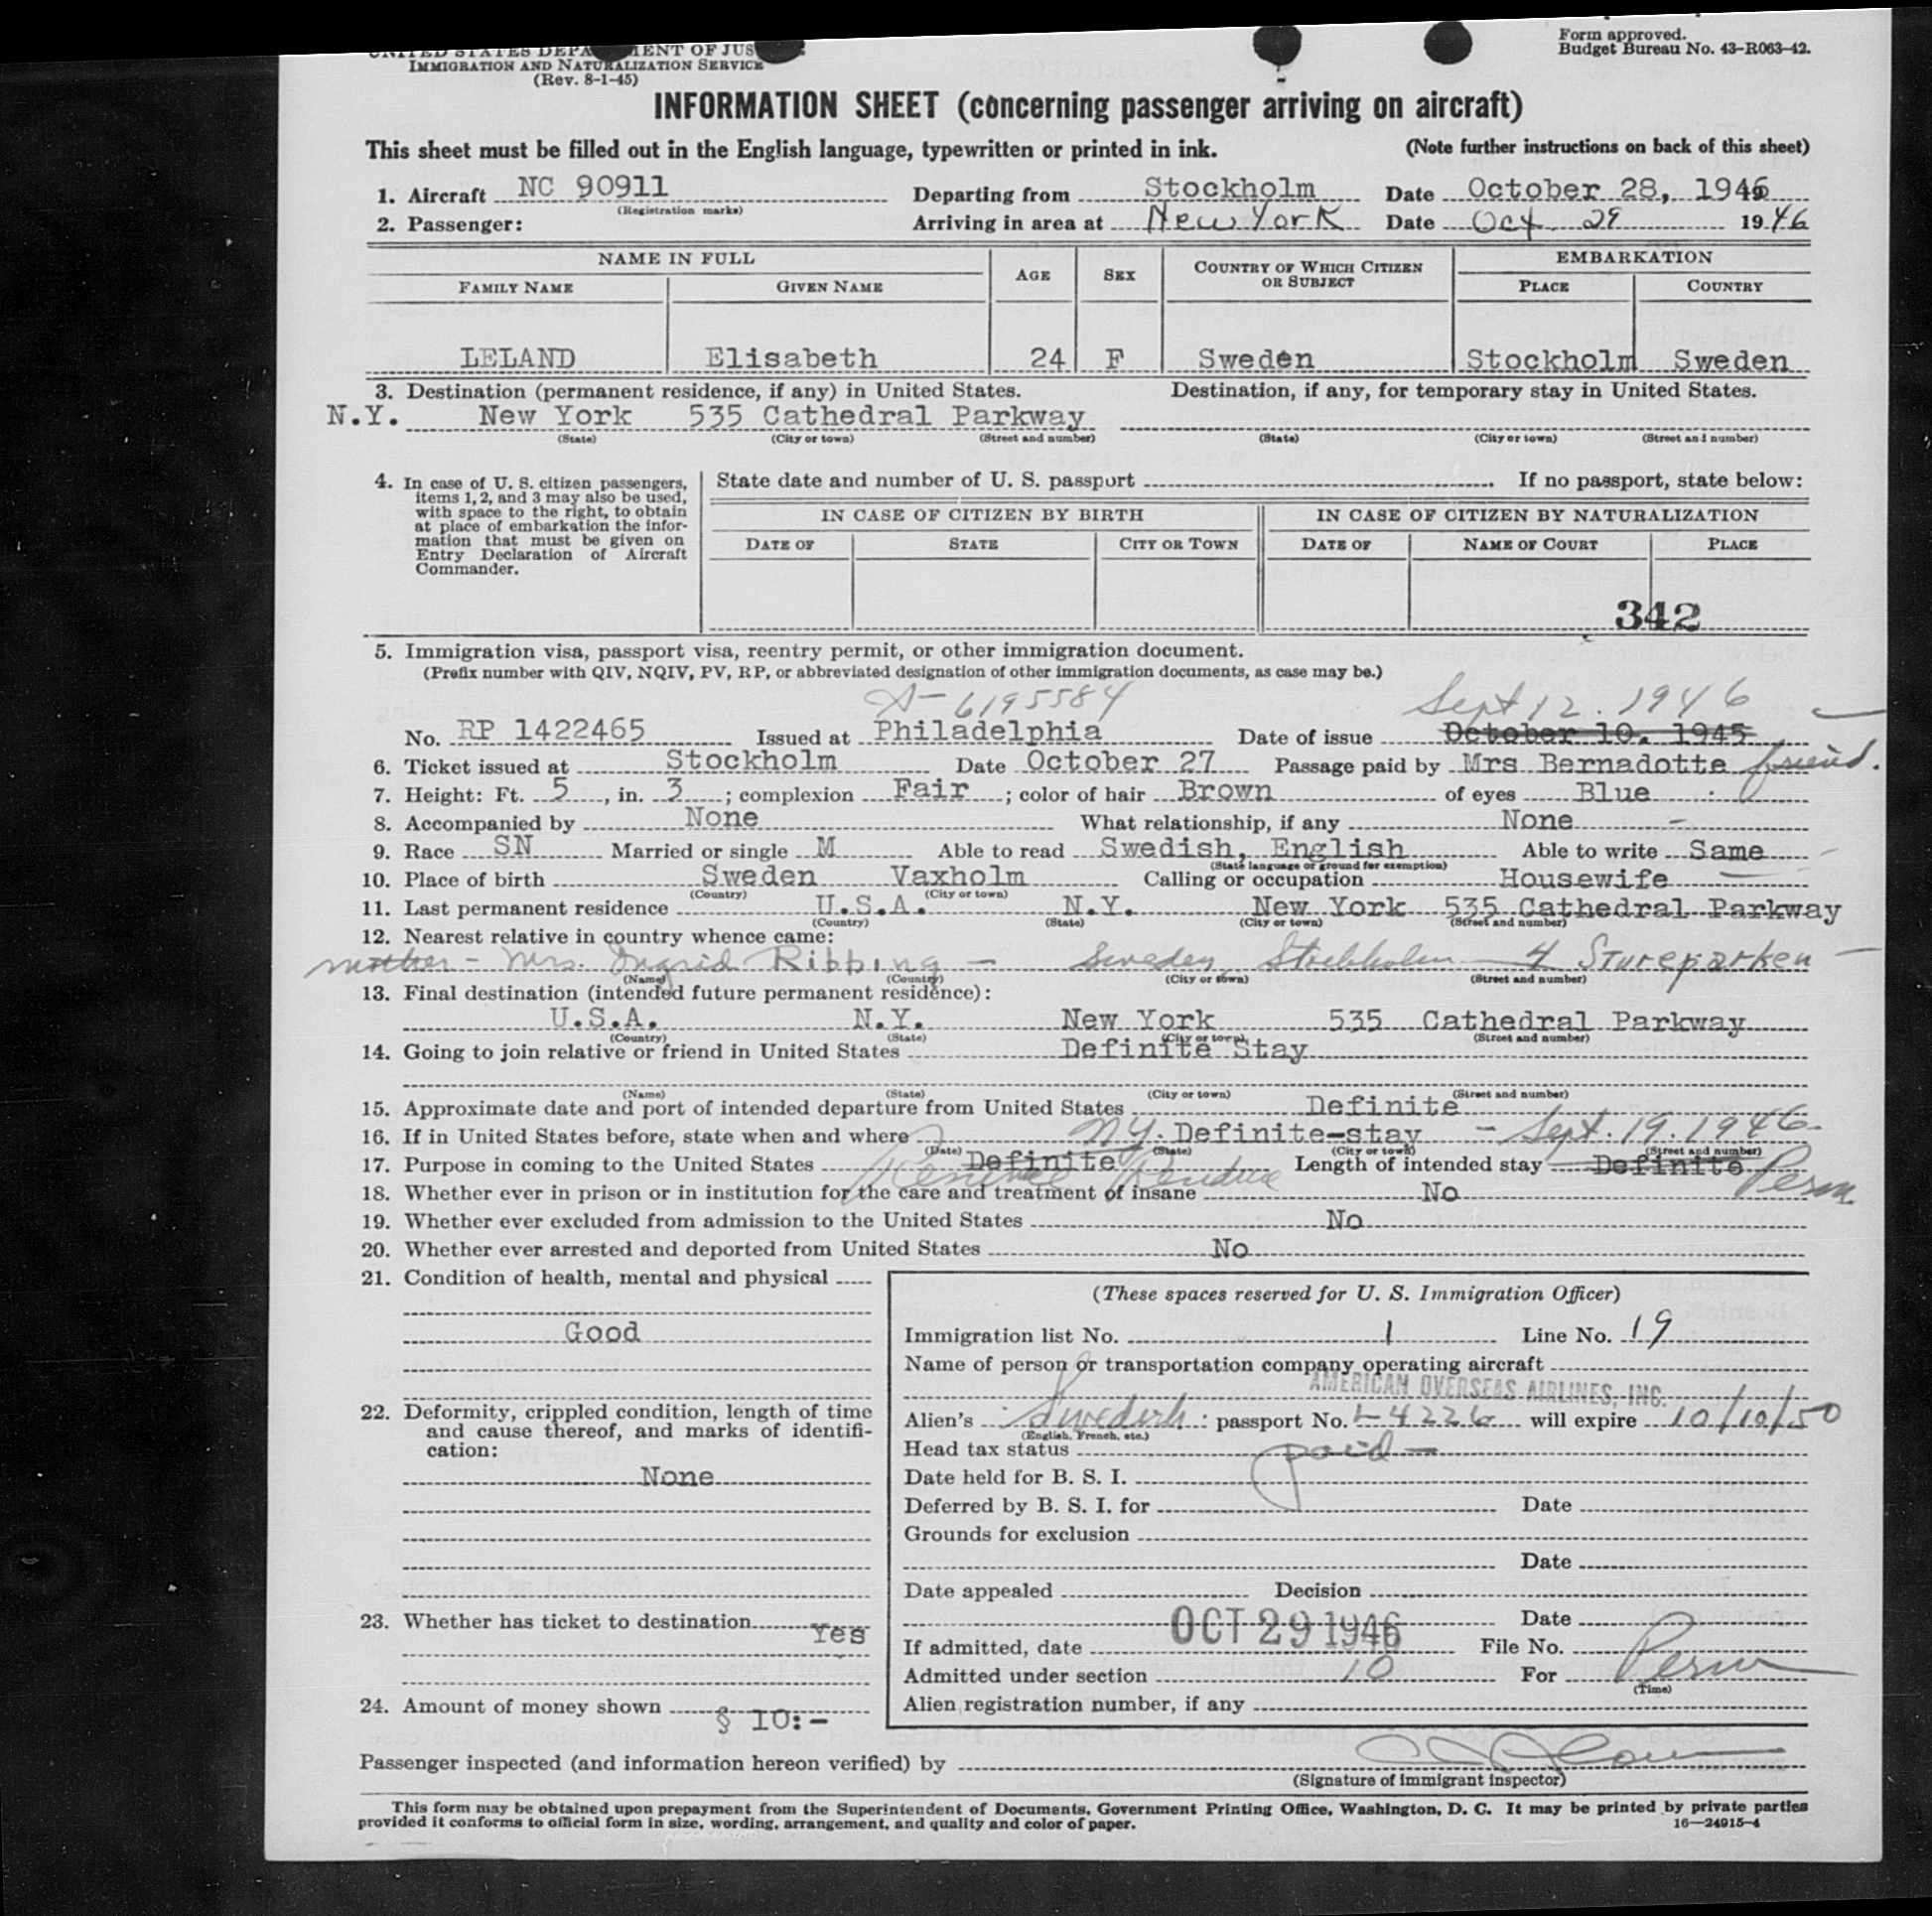 UNITED STATES DEPARTMENT OF JUSTICE
IMMIGRATION AND NATURALIZATION SERVICE
(Rev. 8-1-45)
Form approved.
Budget Bureau No. 43-R063-42.
INFORMATION SHEET (concerning passenger arriving on aircraft)
This sheet must be filled out in the English language, typewritten or printed in ink. (Note further instructions on back of this sheet)
1. Aircraft NC 90911 Departing from Stockholm Date October 28, 1946
(Registration marks)
2. Passenger: Arriving in area at New York Date Oct 29 1946
NAME IN FULL AGE SEX COUNTRY OF WHICH CITIZEN OR SUBJECT EMBARKATION
FAMILY NAME GIVEN NAME PLACE COUNTRY
LELAND Elisabeth 24 F Sweden Stockholm Sweden
3. Destination (permanent residence, if any) in United States. Destination, if any, for temporary stay in United States.
N.Y. New York 535 Cathedral Parkway
(State) (City or town) (Street and number) (State) (City or town) (Street and number)
4. In case of U. S. citizen passengers,
items 1, 2, and 3 may also be used,
with space to the right, to obtain
at place of embarkation the infor-
mation that must be given on
Entry Declaration of Aircraft
Commander.
State date and number of U. S. passport If no passport, state below:
IN CASE OF CITIZEN BY BIRTH IN CASE OF CITIZEN BY NATURALIZATION
DATE OF STATE CITY OR TOWN DATE OF NAME OF COURT PLACE
342
5. Immigration visa, passport visa, reentry permit, or other immigration document.
(Prefix number with QIV, NQIV, PV, RP, or abbreviated designation of other immigration documents, as case may be.)
A-6195584 Sept 12. 1946
No. RP 1422465 Issued at Philadelphia Date of issue October 10. 1945
6. Ticket issued at Stockholm Date October 27 Passage paid by Mrs Bernadotte friend.
7. Height: Ft. 5, in. 3; complexion Fair; color of hair Brown of eyes Blue
8. Accompanied by None What relationship, if any None
9. Race SN Married or single M Able to read Swedish, English Able to write Same
(State language or ground for exemption)
10. Place of birth Sweden Vaxholm Calling or occupation Housewife
(Country) (City or town)
11. Last permanent residence U.S.A. N.Y. New York 535 Cathedral Parkway
(Country) (State) (City or town) (Street and number)
12. Nearest relative in country whence came:
mother - Mrs. Ingrid Ribbing - Sweden, Stockholm 4 Stureparken
(Name) (Country) (City or town) (Street and number)
13. Final destination (intended future permanent residence):
U.S.A. N.Y. New York 535 Cathedral Parkway
(Country) (State) (City or town) (Street and number)
14. Going to join relative or friend in United States Definite Stay
(Name) (State) (City or town) (Street and number)
15. Approximate date and port of intended departure from United States Definite
16. If in United States before, state when and where NY. Definite-stay - Sept. 19. 1946.
(Date) (State) (City or town) (Street and number)
17. Purpose in coming to the United States Definite Length of intended stay Definite Perm
18. Whether ever in prison or in institution for the care and treatment of insane No
19. Whether ever excluded from admission to the United States No
20. Whether ever arrested and deported from United States No
21. Condition of health, mental and physical
Good
22. Deformity, crippled condition, length of time
and cause thereof, and marks of identifi-
cation:
None
23. Whether has ticket to destination Yes
24. Amount of money shown § 10:-
(These spaces reserved for U. S. Immigration Officer)
Immigration list No. 1 Line No. 19
Name of person or transportation company operating aircraft
AMERICAN OVERSEAS AIRLINES, INC.
Alien's Swedish: passport No. L-4226 will expire 10/10/50
(English, French, etc.)
Head tax status paid -
Date held for B. S. I.
Deferred by B. S. I. for Date
Grounds for exclusion
Date
Date appealed Decision
Date
If admitted, date OCT 29 1946 File No.
Admitted under section 10 For Perm
(Time)
Alien registration number, if any
Passenger inspected (and information hereon verified) by
(Signature of immigrant inspector)
This form may be obtained upon prepayment from the Superintendent of Documents, Government Printing Office, Washington, D. C. It may be printed by private parties
provided it conforms to official form in size, wording, arrangement, and quality and color of paper. 16—24915-4